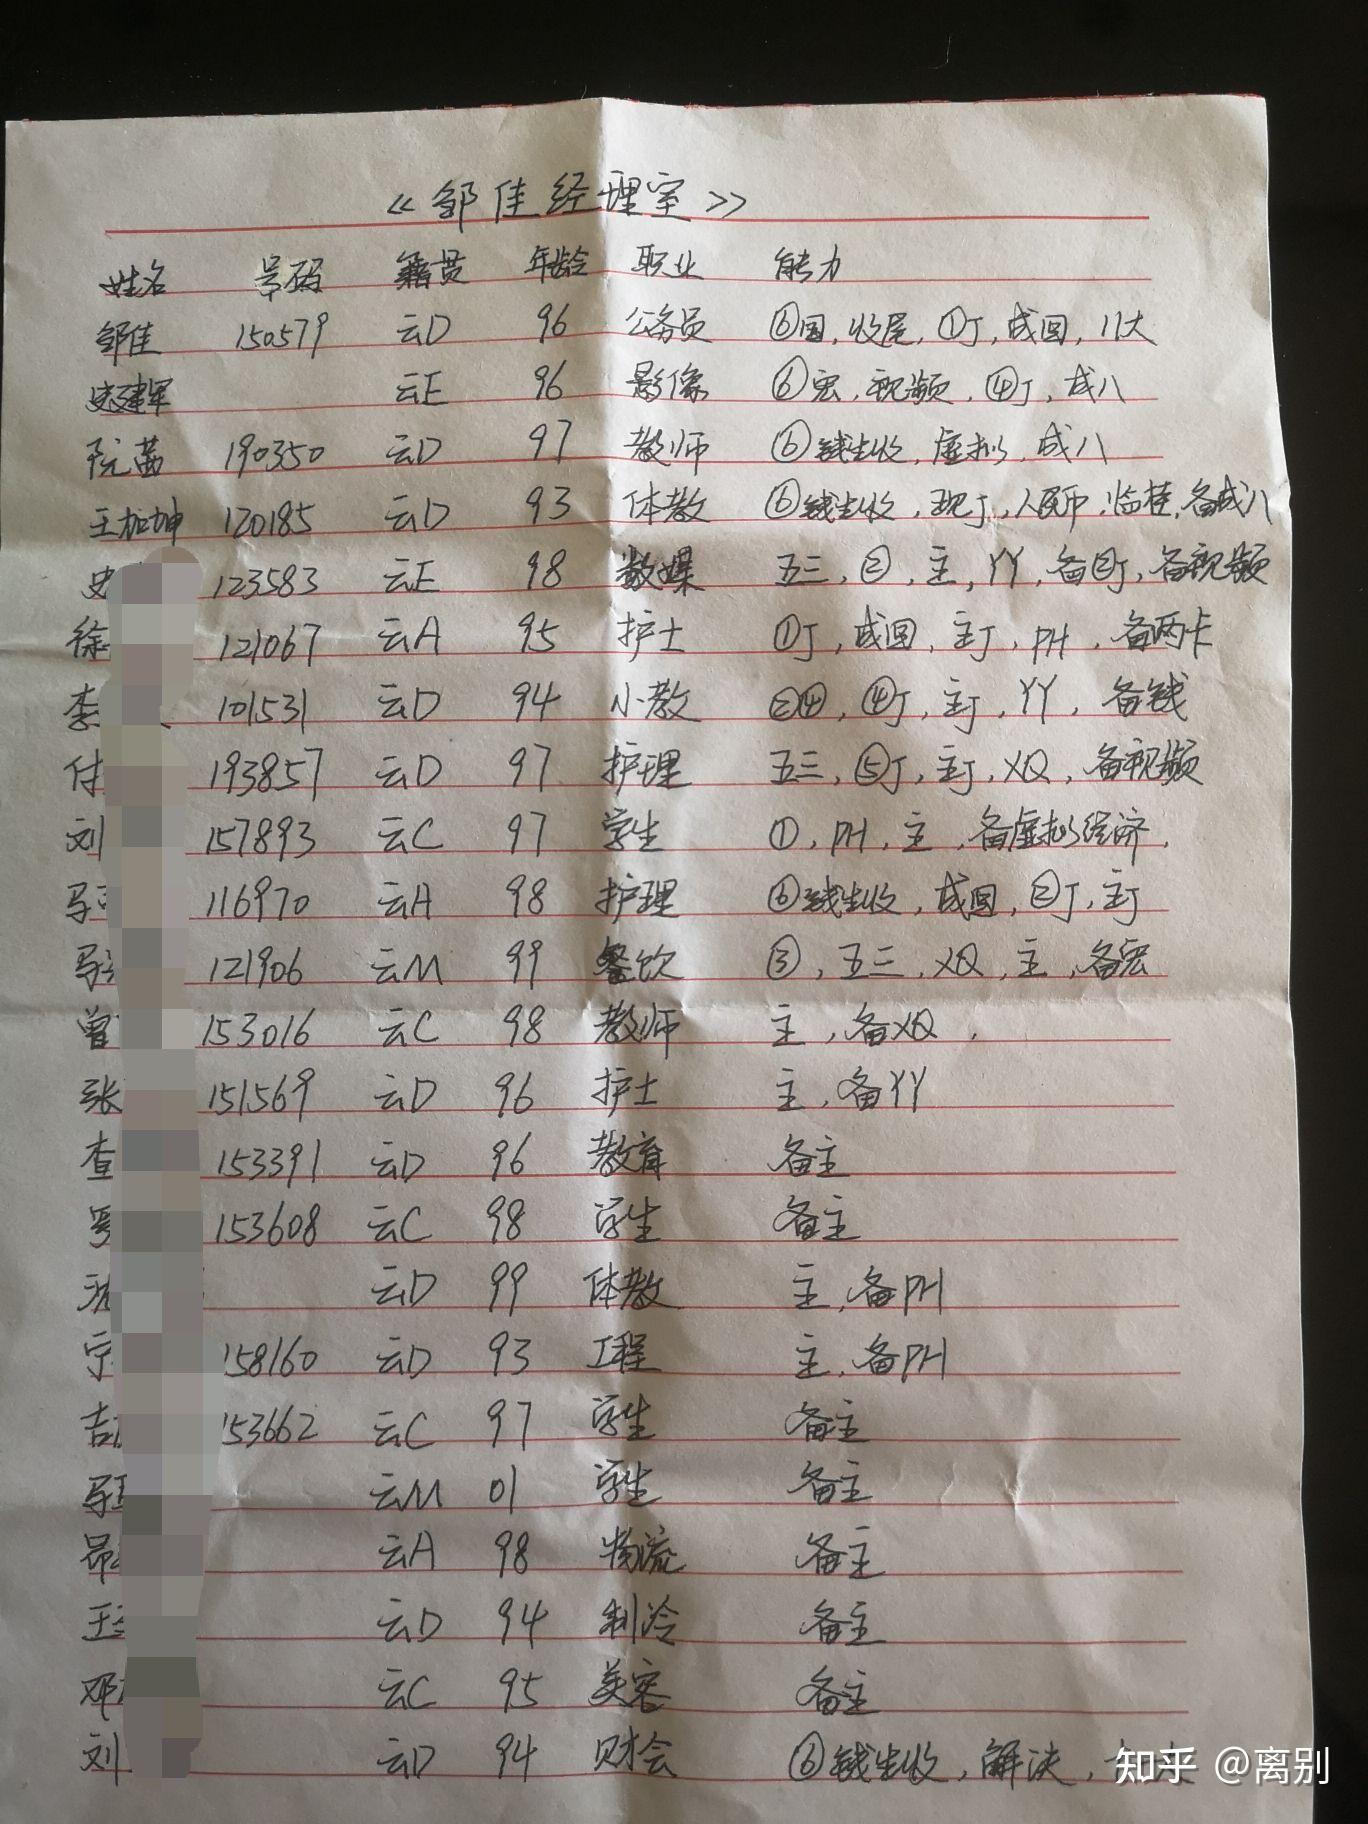 《邹佳经理室》
姓名 号码 籍贯 年龄 职业 能力
邹佳 150579 云D 96 公务员 ⑥国，收尾，①J，成国，八大
史建军 云E 96 影像 ⑥宏，视频，④J，成八
阮茜 190350 云D 97 教师 ⑥钱生收，虚拟，成八
王加坤 120185 云D 93 体教 ⑥钱生收，现J，人民币，临桂，备成八
史 123583 云E 98 数媒 五三，②，主，YY，备②J，备视频
徐 121067 云A 95 护士 ①J，成国，主J，PH，备两卡
李 101531 云D 94 小教 ②④，④J，主J，YY，备钱
付 193857 云D 97 护理 五三，⑤J，主J，XQ，备视频
刘 157893 云C 97 学生 ①，PH，主，备虚拟经济，
马 116970 云A 98 护理 ⑥钱生收，成国，②J，主J
马 121906 云M 99 餐饮 ③，五三，XQ，主，备宏
曾 153016 云C 98 教师 主，备XQ，
张 151569 云D 96 护士 主，备YY
查 153391 云D 96 教育 备主
153608 云C 98 学生 备主
沈 云D 99 体教 主，备PH
宗 158160 云D 93 工程 主，备PH
吉 153662 云C 97 学生 备主
马 云M 01 学生 备主
昂 云A 98 物流 备主
王 云D 94 制冷 备主
邓 云C 95 美容 备主
刘 云D 94 财会 ⑥钱生收，解决，
知乎 @离别